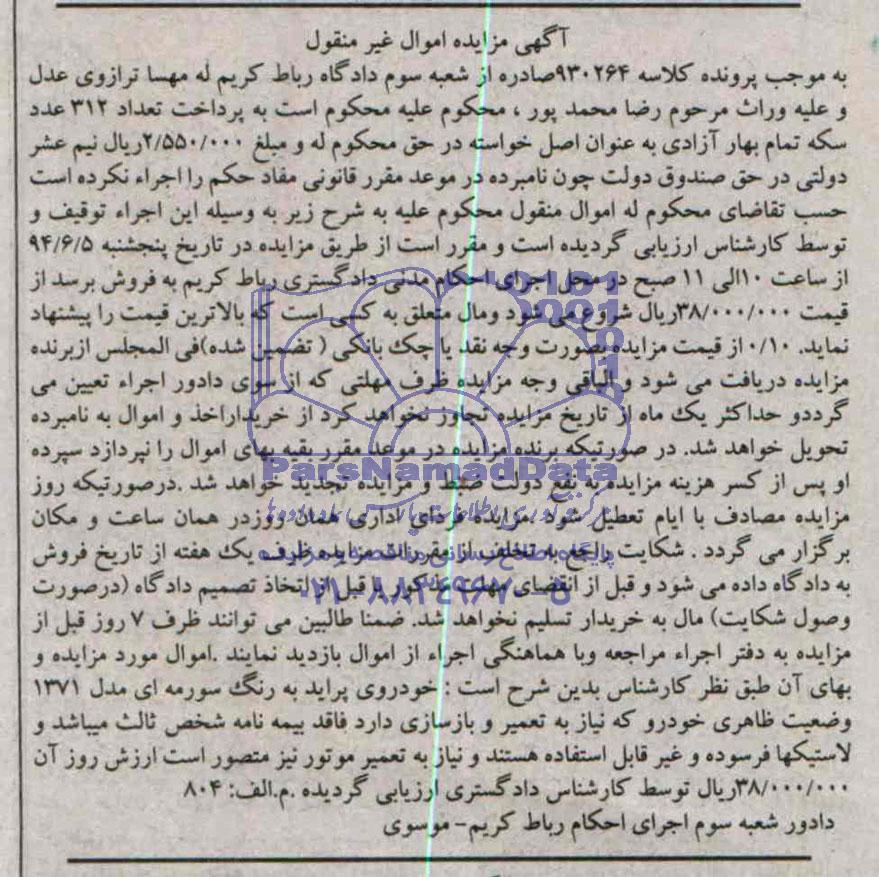 آگهی مزایده اموال غیر منقول
به موجب پرونده کلاسه ۹۳۰۲۶۴صادره از شعبه سوم دادگاه رباط کریم له مهسا ترازوی عدل
و علیه وراث مرحوم رضا محمد پور ، محکوم علیه محکوم است به پرداخت تعداد ۳۱۲ عدد
سکه تمام بهار آزادی به عنوان اصل خواسته در حق محکوم له و مبلغ ۲/۵۵۰/۰۰۰ریال نیم عشر
دولتی در حق صندوق دولت چون نامبرده در موعد مقرر قانونی مفاد حکم را اجراء نکرده است
حسب تقاضای محکوم له اموال منقول محکوم علیه به شرح زیر به وسیله این اجراء توقیف و
توسط کارشناس ارزیابی گردیده است و مقرر است از طریق مزایده در تاریخ پنجشنبه ۹۴/۶/۵
از ساعت ۱۰الی ۱۱ صبح در محل اجرای احکام مدنی دادگستری رباط کریم به فروش برسد از
قیمت ۳۸/۰۰۰/۰۰۰ریال شروع می شود ومال متعلق به کسی است که بالاترین قیمت را پیشنهاد
نماید. ۰/۱۰ از قیمت مزایده بصورت وجه نقد یا چک بانکی ( تضمین شده)فی المجلس ازبرنده
مزایده دریافت می شود و الباقی وجه مزایده ظرف مهلتی که از سوی دادور اجراء تعیین می
گرددو حداکثر یک ماه از تاریخ مزایده تجاوز نخواهد کرد از خریداراخذ و اموال به نامبرده
تحویل خواهد شد. در صورتیکه برنده مزایده در موعد مقرر بقیه بهای اموال را نپردازد سپرده
ParsNamadData
او پس از کسر هزینه مزایده به نفع دولت ضبط و مزایده تجدید خواهد شد .درصورتیکه روز
مزایده مصادف با ایام تعطیل شود .مزایده فردای اداری همان روزدر همان ساعت و مکان
برگزار می گردد . شکایت راجع به تخلف از مقررات مزایده ظرف یک هفته از تاریخ فروش
به دادگاه داده می شود و قبل از انقضای مهلت مذکور یا قبل از اتخاذ تصمیم دادگاه (درصورت
۰۲۱-۸۸۳۴۹۶۷۰-۵
وصول شکایت) مال به خریدار تسلیم نخواهد شد. ضمنا طالبین می توانند ظرف ۷ روز قبل از
مزایده به دفتر اجراء مراجعه وبا هماهنگی اجراء از اموال بازدید نمایند .اموال مورد مزایده و
بهای آن طبق نظر کارشناس بدین شرح است : خودروی پراید به رنگ سورمه ای مدل ۱۳۷۱
وضعیت ظاهری خودرو که نیاز به تعمیر و بازسازی دارد فاقد بیمه نامه شخص ثالث میباشد و
لاستیکها فرسوده و غیر قابل استفاده هستند و نیاز به تعمیر موتور نیز متصور است ارزش روز آن
۳۸/۰۰۰/۰۰۰ریال توسط کارشناس دادگستری ارزیابی گردیده .م.الف: ۸۰۴
دادور شعبه سوم اجرای احکام رباط کریم- موسوی